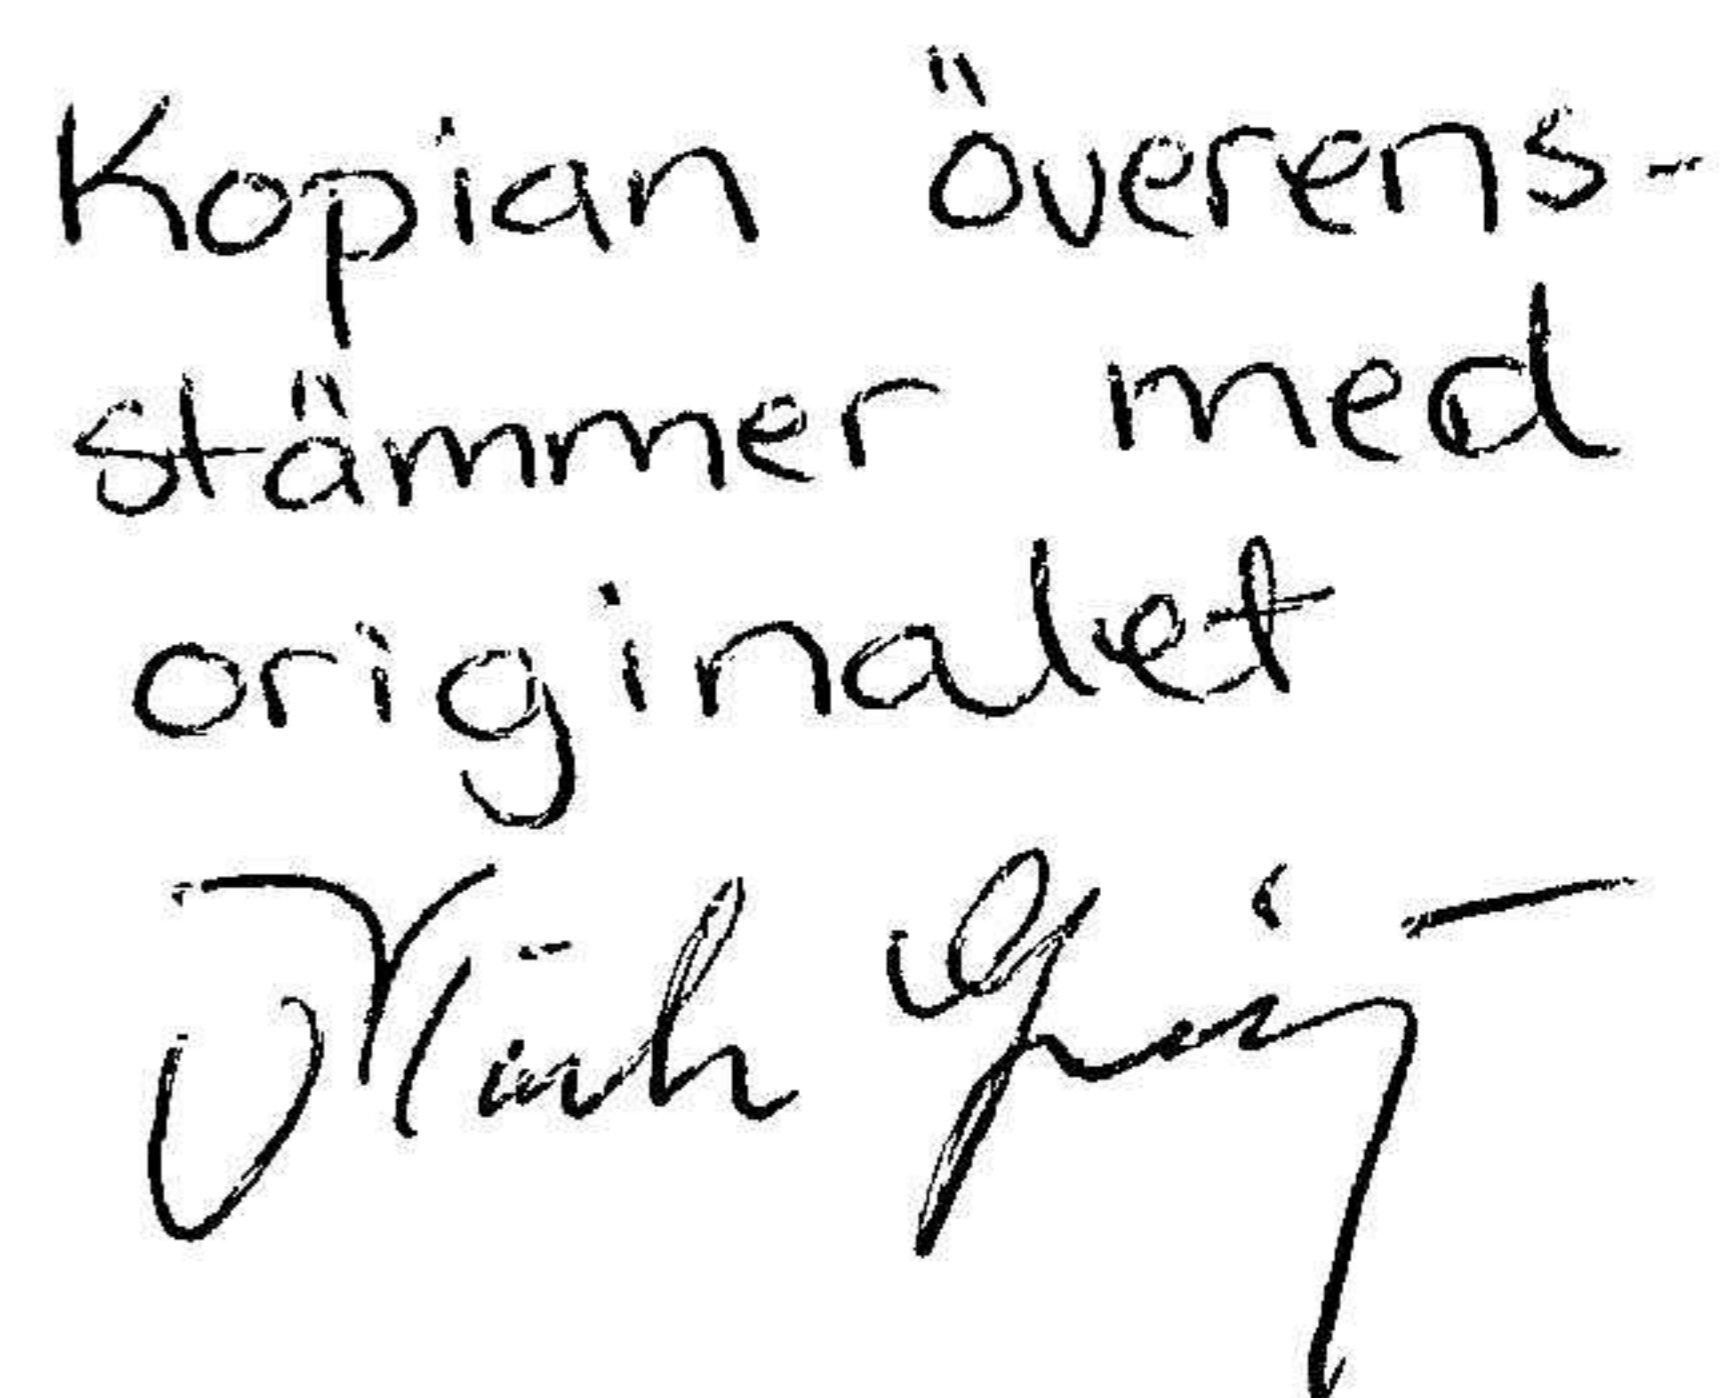 Kopian överens-
stämmer med
originalet